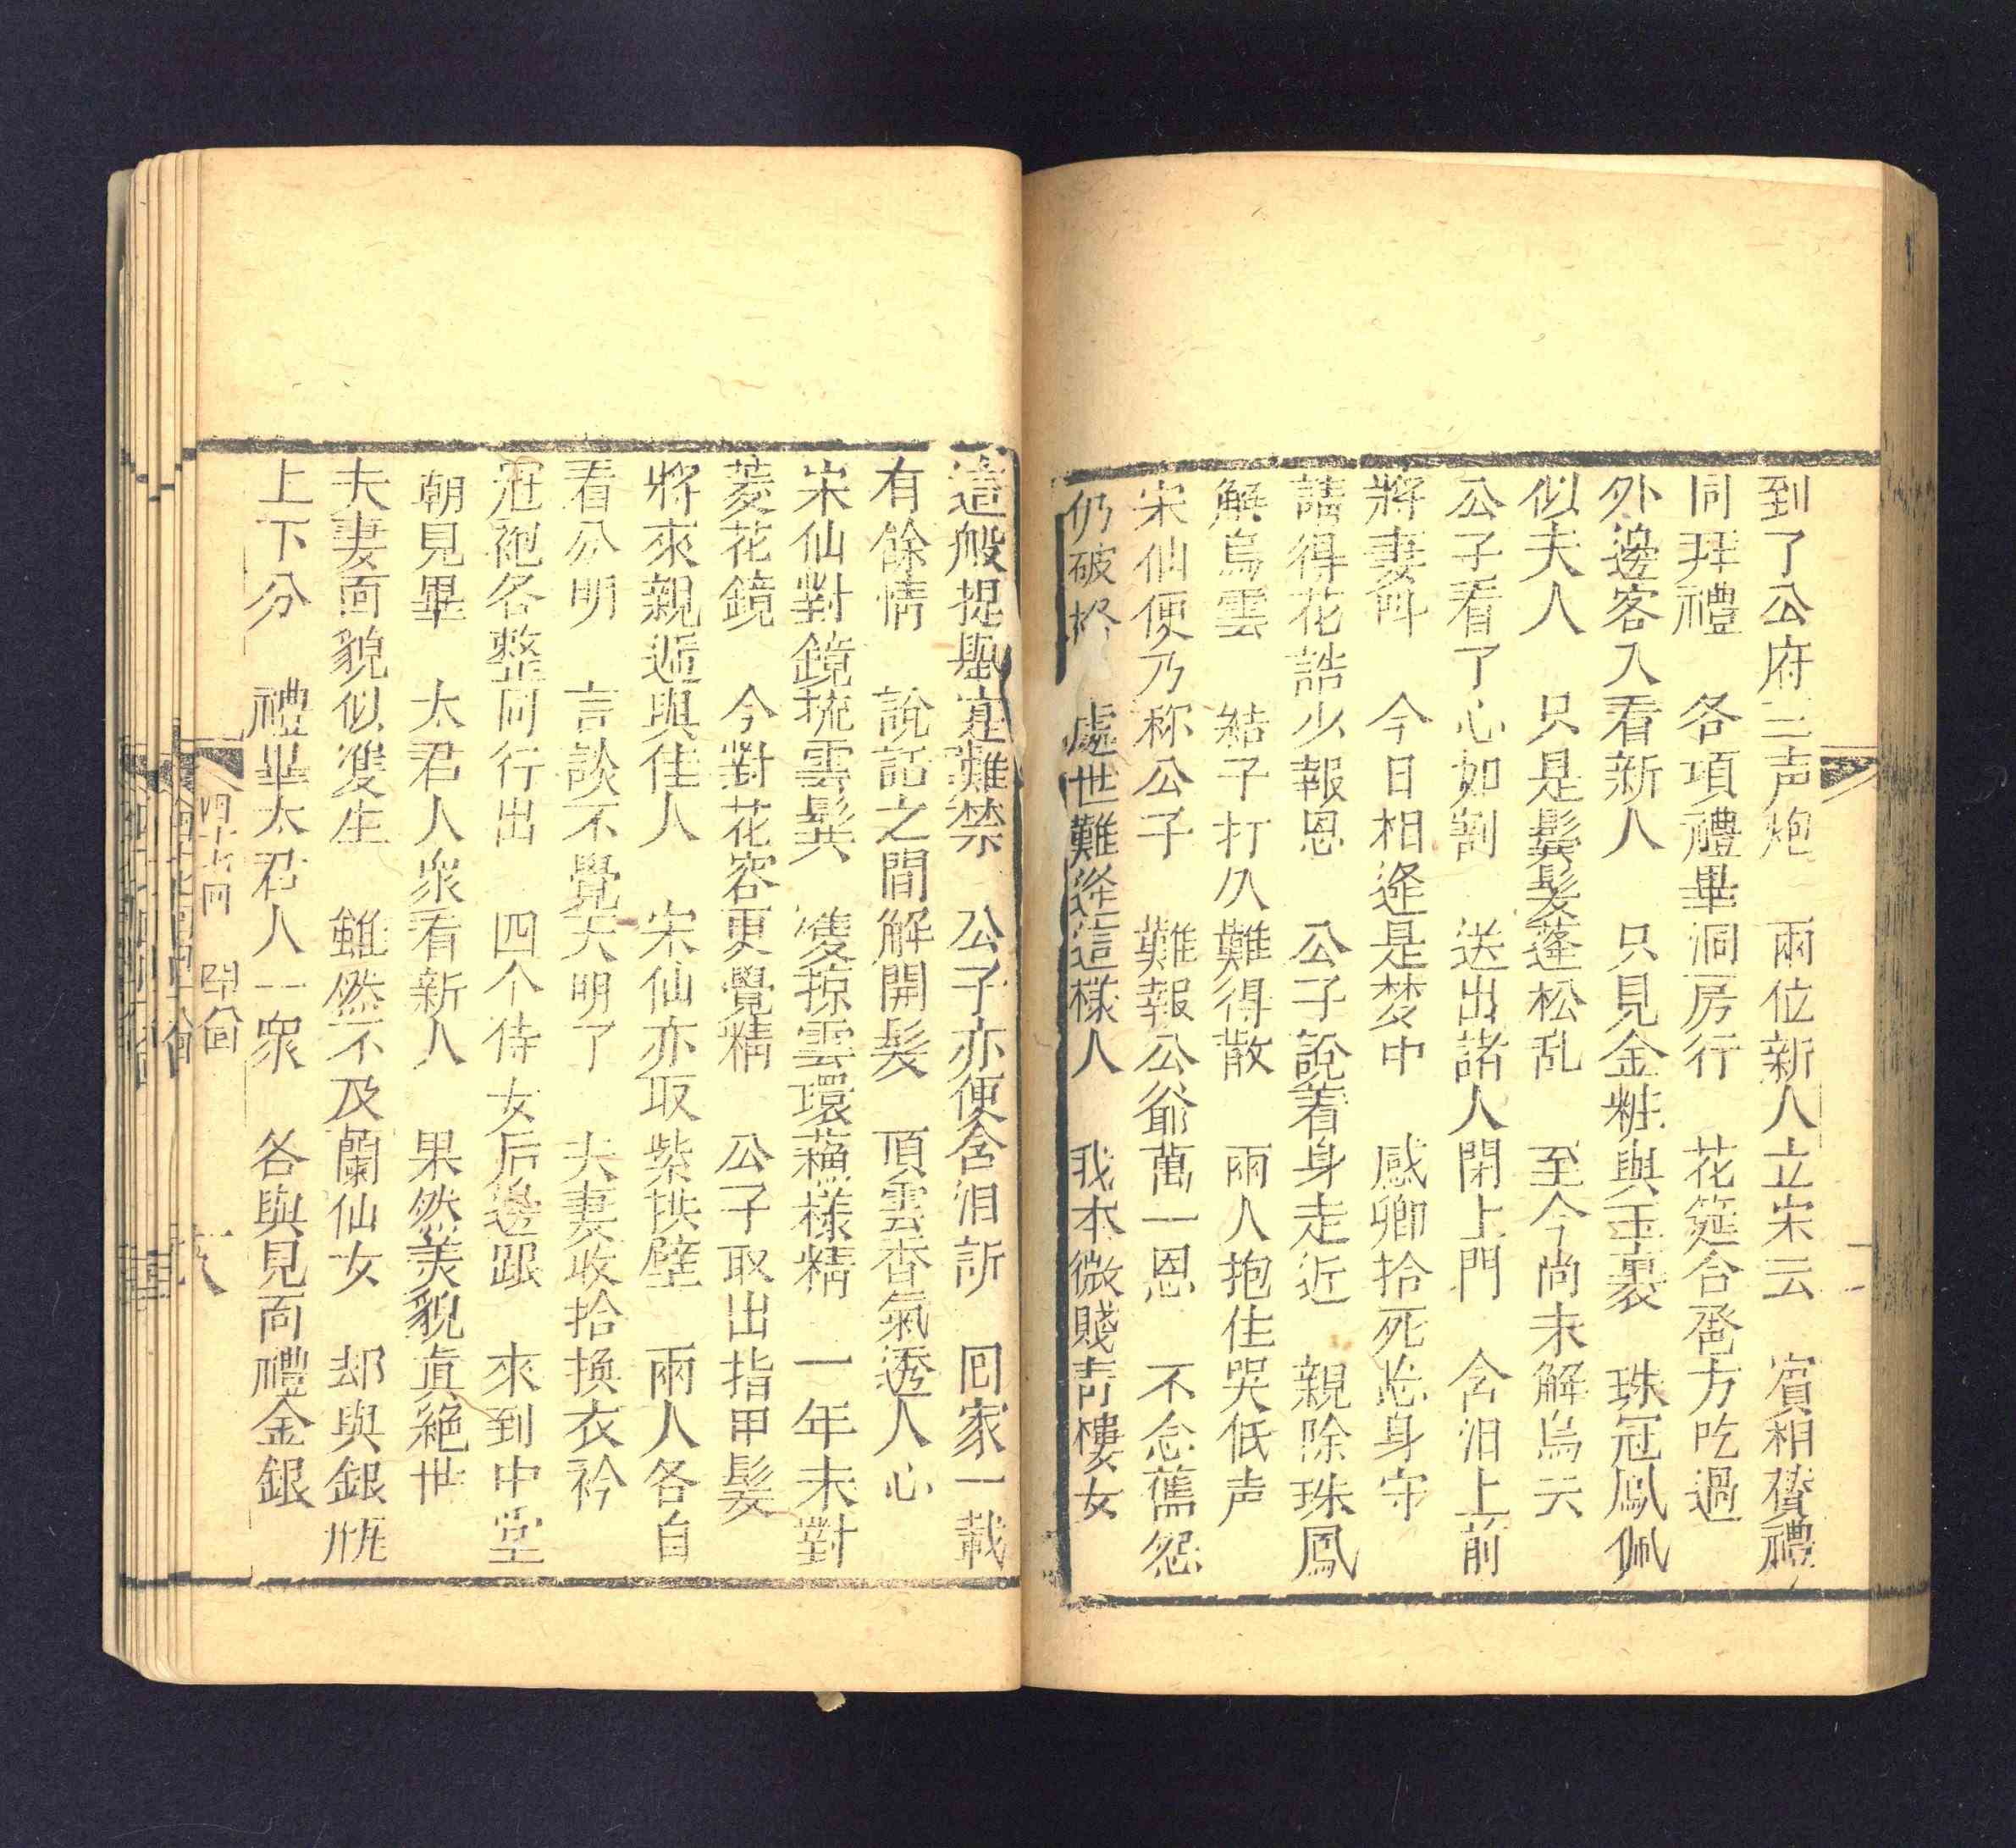 到了公府三声炮　兩位新人立宋云　賓相賛禮
同拜禮　各項禮畢洞房行　花筵合卺方吃過
外邊客入看新人　只見金粧與玉裹　珠冠鳳佩
似夫人　只是鬓髮蓬松乱　至今尚未解烏云
公子看了心如割　送出諸人閉上門　含泪上前
將妻叫　今日相逢是梦中　感卿拾死身守
請得花誥少報恩　公子說着身走近　親除珠鳳
解烏雲　結子打久難得散　兩人抱住哭低声
宋仙便乃称公子　難報公爺萬一恩　不念舊怨
仍破　處世難逢這樣人　我本微賤青樓女
這般提舉寔難禁　公子亦便含泪訴　回家一載
有餘情　說話之間解開髮　頂雲香氣透人心
宋仙對鏡梳雲鬂　雙掠雲環蘓樣精　一年未對
菱花鏡　今對花容更覺精　公子取出指甲髮
將來親遞與佳人　宋仙亦取紫拱璧　兩人各自
看分明　言談不覺天明了　夫妻收拾換衣衿
冠袍各整同行出　四个侍女后邊跟　來到中堂
朝見畢　太君人衆看新人　果然美貌真絕世
夫妻面貌似雙生　雖然不及蘭仙女　却與銀瓶
上下分　禮畢太君人一衆　各與見面禮金銀